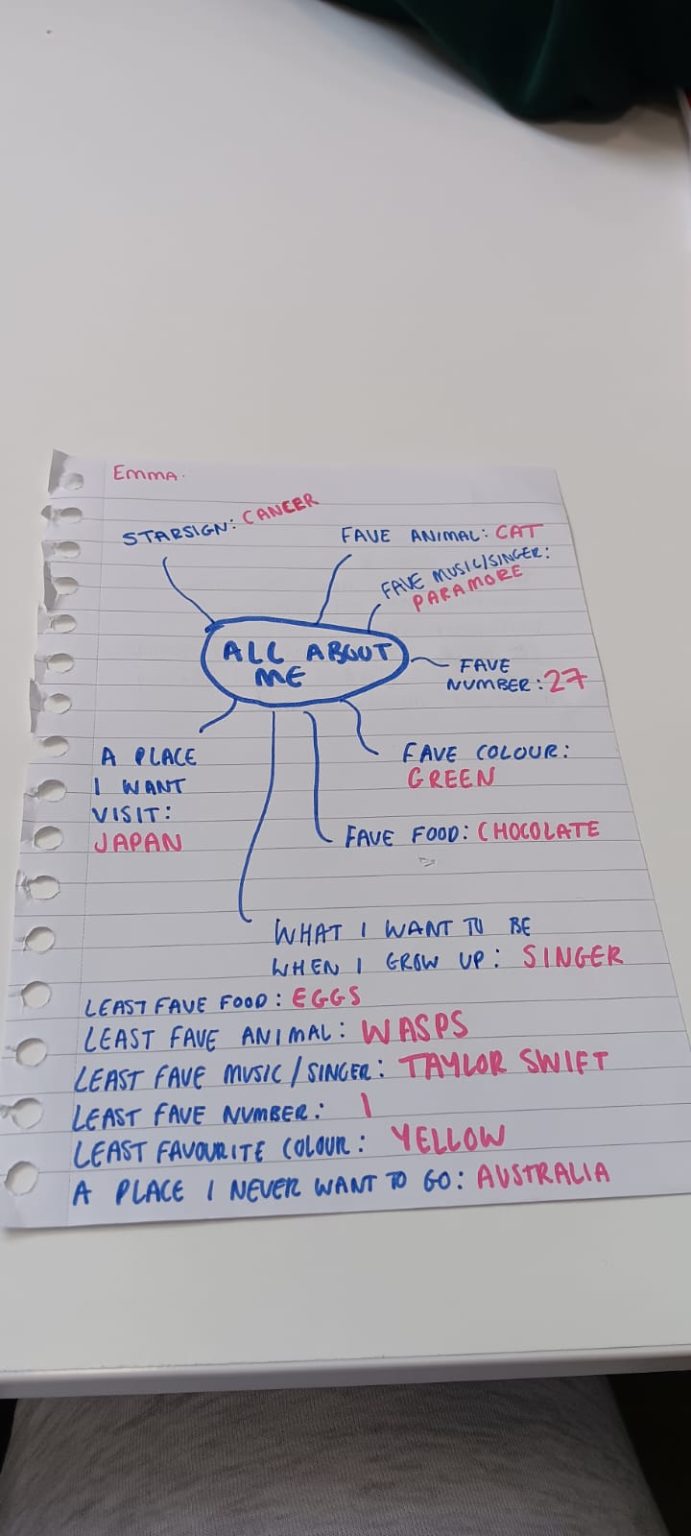 EMMA.
STARSIGN: CANCER
FAVE ANIMAL: CAT
FAVE MUSIC/SINGER:
PARAMORE
ALL ABOUT
ME
FAVE
NUMBER: 27
A PLACE
I WANT
VISIT:
JAPAN
FAVE COLOUR:
GREEN
FAVE FOOD: CHOCOLATE
WHAT I WANT TO BE
WHEN I GROW UP: SINGER
LEAST FAVE FOOD: EGGS
LEAST FAVE ANIMAL: WASPS
LEAST FAVE MUSIC/SINGER: TAYLOR SWIFT
LEAST FAVE NUMBER: 1
LEAST FAVOURITE COLOUR: YELLOW
A PLACE I NEVER WANT TO GO: AUSTRALIA